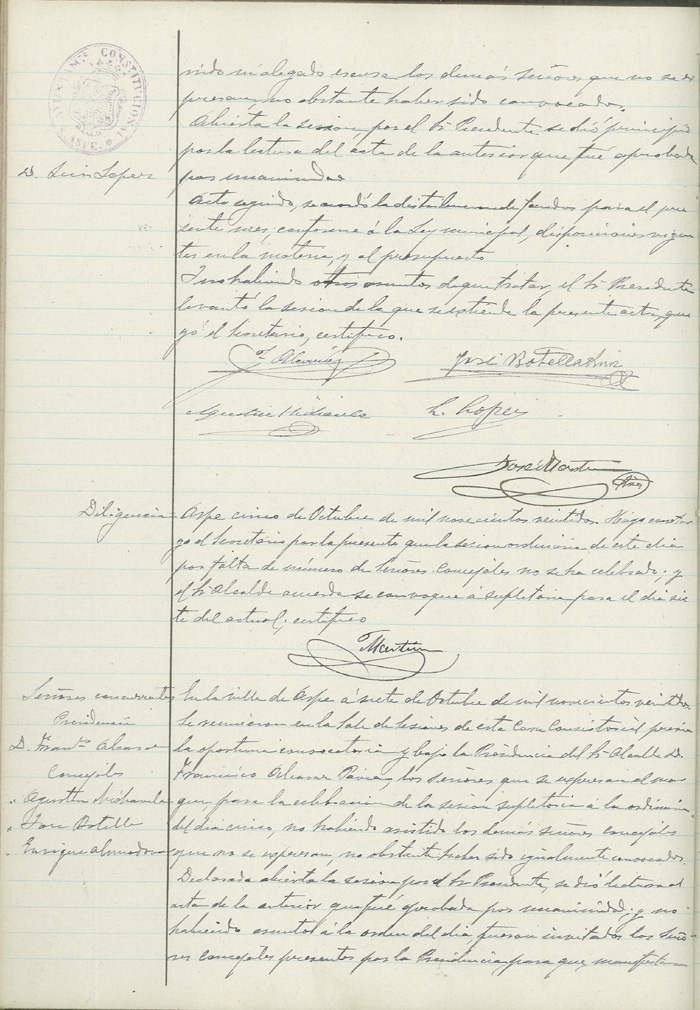 AYUNTAM.to CONSTITUCIONAL
ASPE
D. Luis Lopez
nido ni alegado escusa los demás señores que no se ex
presan, no obstante haber sido convocados.
Abierta la sesion, por el Sr Presidente se dió principio
por la lectura del acta de la anterior que fué aprobada
por unanimidad
Acto seguido, se acordó la distribucion de fondos para el pre
sente mes, conforme á la Ley municipal, disposiciones vigen
tes en la materia, y al presupuesto
Y no habiendo otros asuntos de que tratar, el Sr Presidente
levantó la sesion de la que se estiende la presente acta, que
yó el Secretario, certifico.
José Botella
L. Lopez
José Martin
Diligencia
Aspe cinco de Octubre de mil novecientos veintidos. Hago constar
yo el Secretario por la presente que la sesion ordinaria de este dia
por falta de número de Señores Concejales no se ha celebrado; y
el Sr Alcalde acuerda se convoque á supletoria para el dia sie
te del actual; certifico
Martin
Señores concurrentes
Presidencia
D. Franco Alcaraz
Concejales
" Agustin
" Jose Botella
" Enrique Almodovar
En la villa de Aspe á siete de Octubre de mil novecientos veintidos
se reunieron en la Sala de sesiones de esta Casa Consistorial previa
la oportuna convocatoria y bajo la Presidencia del Sr Alcalde D.
Francisco Alcaraz Pavia, los señores que se expresan al mar
gen, para la celebracion de la sesion supletoria á la ordinaria
del dia cinco, no habiendo asistido los demás señores concejales
que no se expresan, no obstante haber sido igualmente convocados.
Declarada abierta la sesion por el Sr Presidente, se dió lectura al
acta de la anterior que fué aprobada por unanimidad; y no
habiendo asuntos á la orden del dia fueron invitados los Seño
res concejales presentes por la Presidencia para que manifestaran